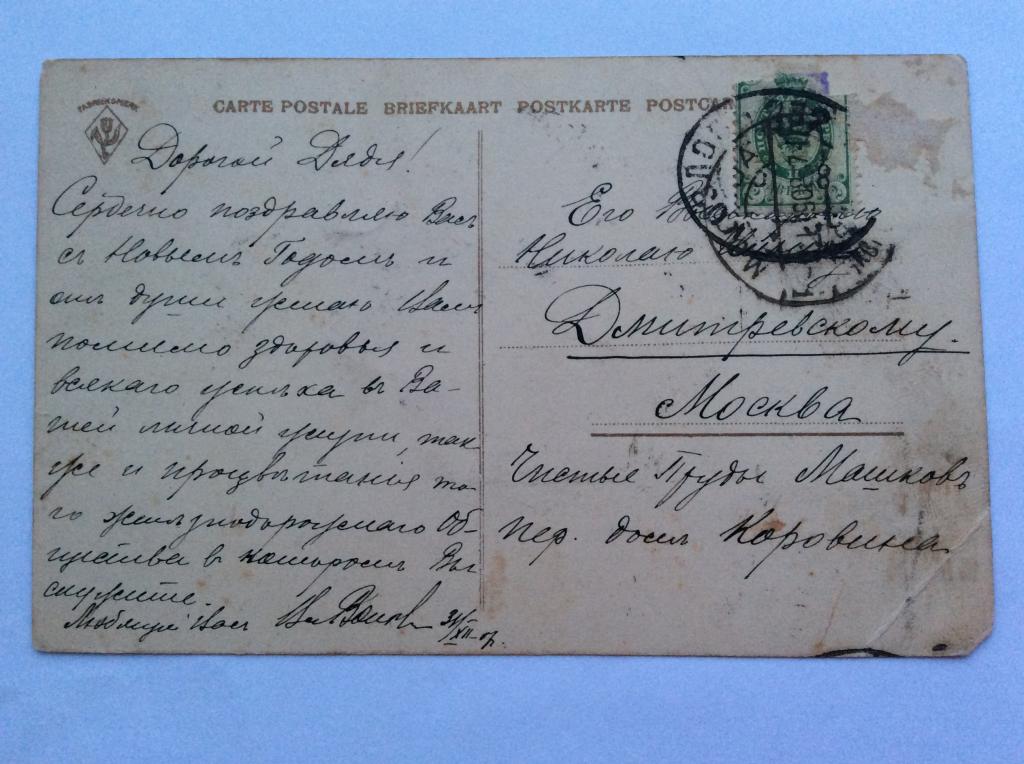 FABRIEKSMERK
CARTE POSTALE BRIEFKAART POSTKARTE POSTCAR
Дорогой Дядя!
Сердечно поздравляю Васъ
съ Новымъ Годомъ и
отъ души желаю Вамъ
помимо здоровья и
всякаго успѣха въ Ва-
шей личной жизни, так
же и процвѣтанія то-
го желѣзнодорожнаго Об-
щества в которомъ Вы
служите.
Любящій Васъ
31/XII
Его
Николаю
Дмитревскому.
Москва
Чистые Пруды Машковъ
пер. домъ Коровина